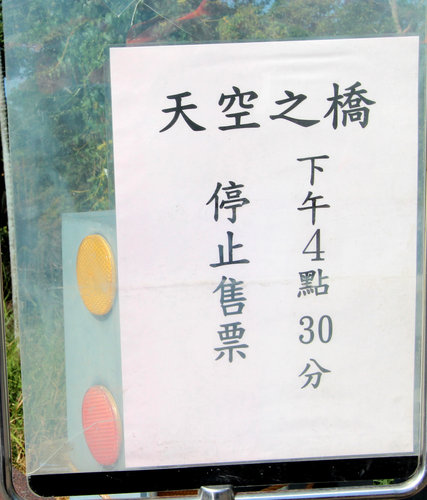 天空之橋
下午4點30分
停止售票